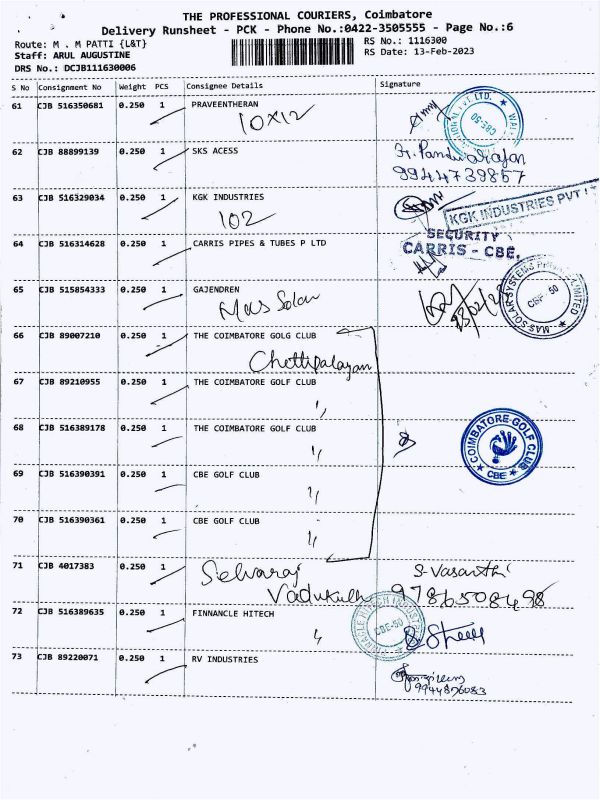 THE PROFESSIONAL COURIERS, Coimbatore
Delivery Runsheet - PCK - Phone No.:0422-3505555 - Page No.:6
Route: M . M PATTI {L&T}
RS No.: 1116300
Staff: ARUL AUGUSTINE
RS Date: 13-Feb-2023
DRS No.: DCJB111630006
S No Consignment No Weight PCS Consignee Details Signature
61 CJB 516350681 0.250 1 PRAVEENTHERAN
10X12
62 CJB 88899139 0.250 1 SKS ACESS
9944739857
63 CJB 516329034 0.250 1 KGK INDUSTRIES
102
KGK INDUSTRIES PVT
64 CJB 516314628 0.250 1 CARRIS PIPES & TUBES P LTD
SECURITY
CARRIS - CBE.
65 CJB 515854333 0.250 1 GAJENDREN
Mas Solar
MAS SOLAR SYSTEMS PRIVATE LIMITED
CBE-50
66 CJB 89007210 0.250 1 THE COIMBATORE GOLG CLUB
Chettipalayam
67 CJB 89210955 0.250 1 THE COIMBATORE GOLF CLUB
68 CJB 516389178 0.250 1 THE COIMBATORE GOLF CLUB
COIMBATORE GOLF CLUB
CBE
69 CJB 516390391 0.250 1 CBE GOLF CLUB
70 CJB 516390361 0.250 1 CBE GOLF CLUB
71 CJB 4017383 0.250 1 Selvaraj
S. Vasanthi
9786508498
72 CJB 516389635 0.250 1 FINNANCLE HITECH
CBE-50
73 CJB 89220071 0.250 1 RV INDUSTRIES